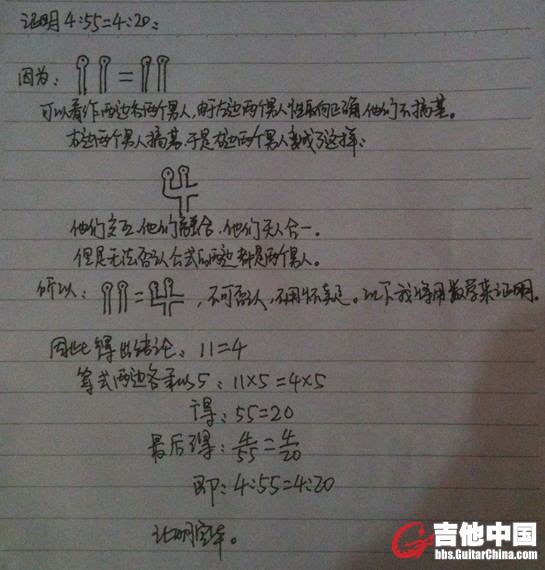 证明4:55=4:20:
因为: =
可以看作两边各两个男人,由于左边两个男人性取向正确,他们不搞基。
右边两个男人搞基,于是右边两个男人变成了这样:
他们交互,他们融合,他们天人合一。
但是无法否认公式的两边都是两个男人。
所以: = ,不可否认,不用怀疑。以下我将用数学来证明。
因此得出结论:11=4
等式两边各乘以5:11×5=4×5
得:55=20
最后得:4/55=4/20
即:4:55=4:20
证明完毕。
吉他中国
bbs.GuitarChina.com